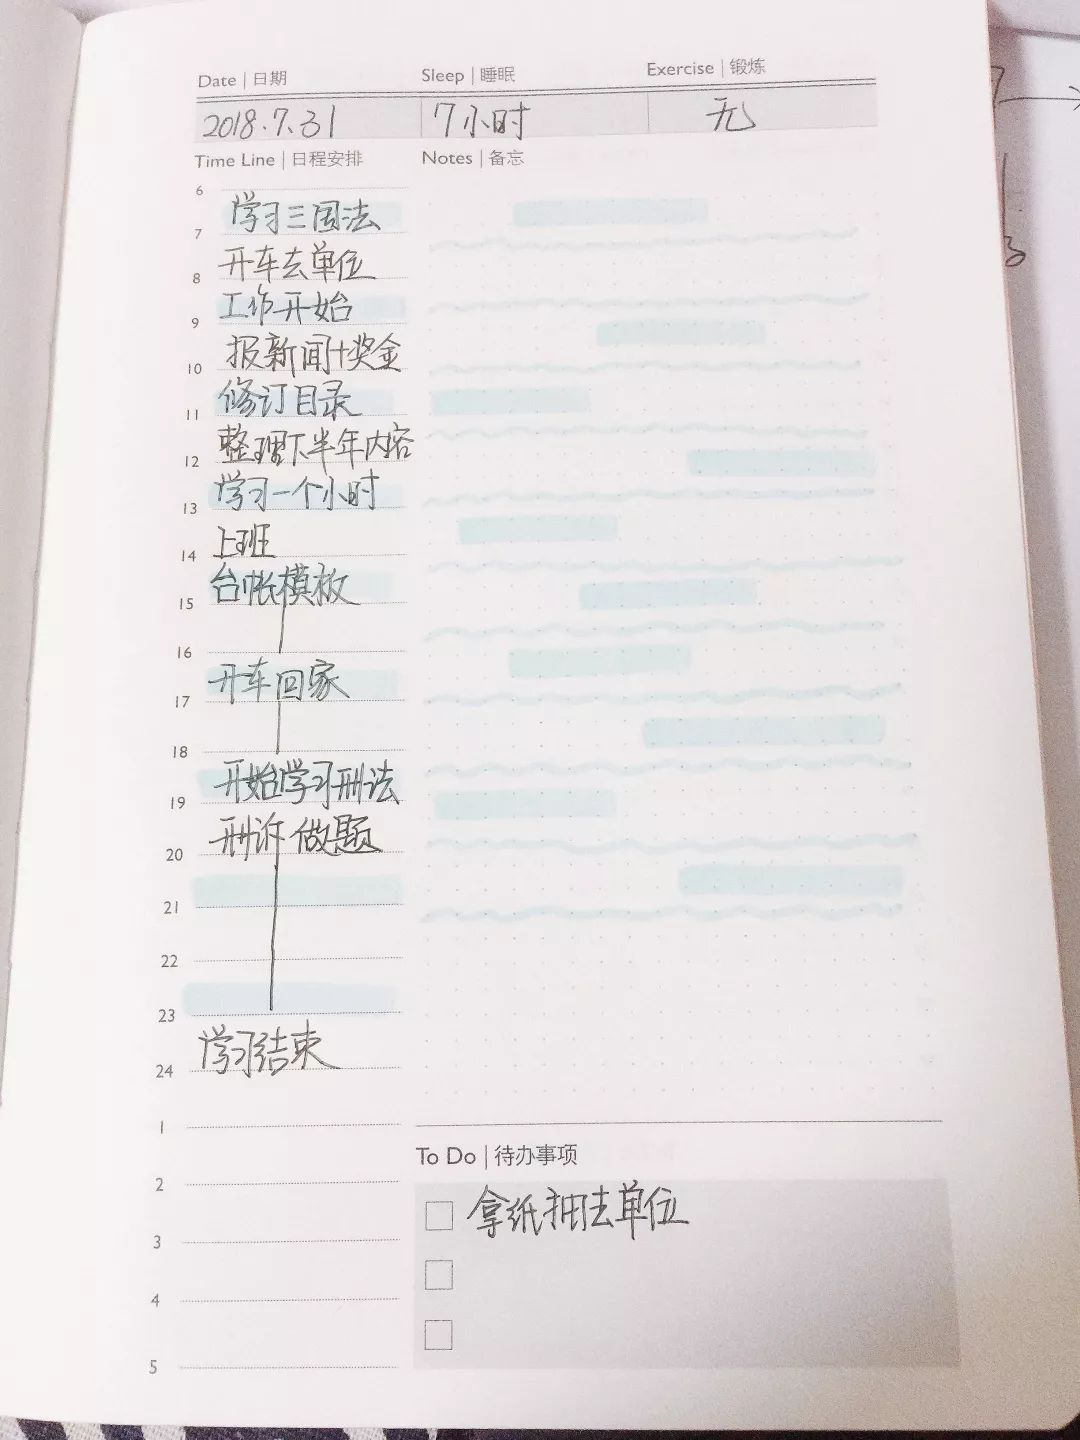 Date | 日期 Sleep | 睡眠 Exercise | 锻炼
2018.7.31 7小时 无
Time Line | 日程安排 Notes | 备忘
6
学习三国法
7
开车去单位
8
工作开始
9
报新闻+奖金
10
修订目录
11
整理下半年内容
12
学习一个小时
13
上班
14
台帐模板
15
16
开车回家
17
18
开始学习刑法
19
刑诉 做题
20
21
22
23
学习结束
24
1
To Do | 待办事项
2
拿纸 去单位
3
4
5